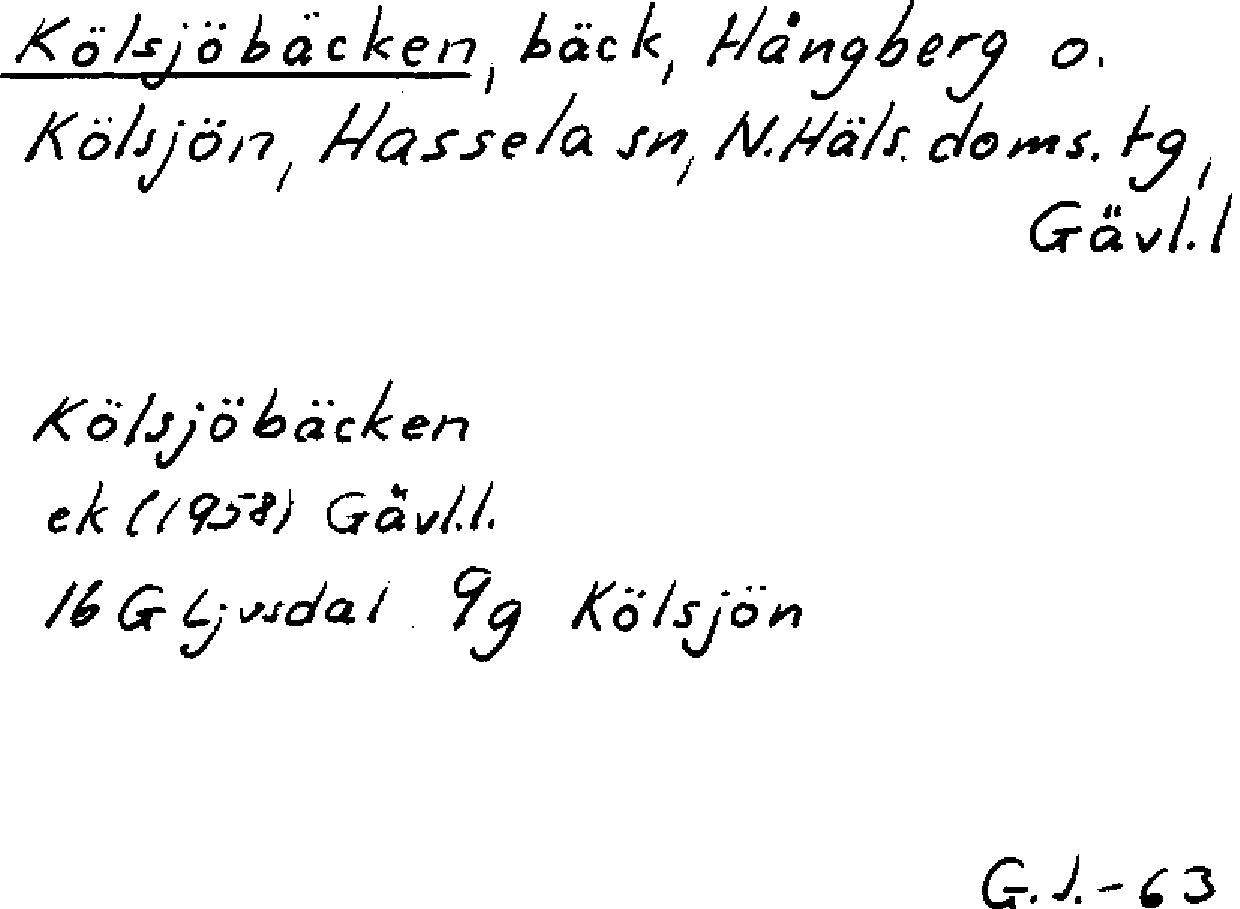 Kölsjöbäcken, bäck, Hångberg o.
Kölsjön, Hassela sn, N.Häls. doms. tg,
Gävl.l
Kölsjöbäcken
ek (1958) Gävl.l.
16 G Ljusdal 9g Kölsjön
G.J.-63